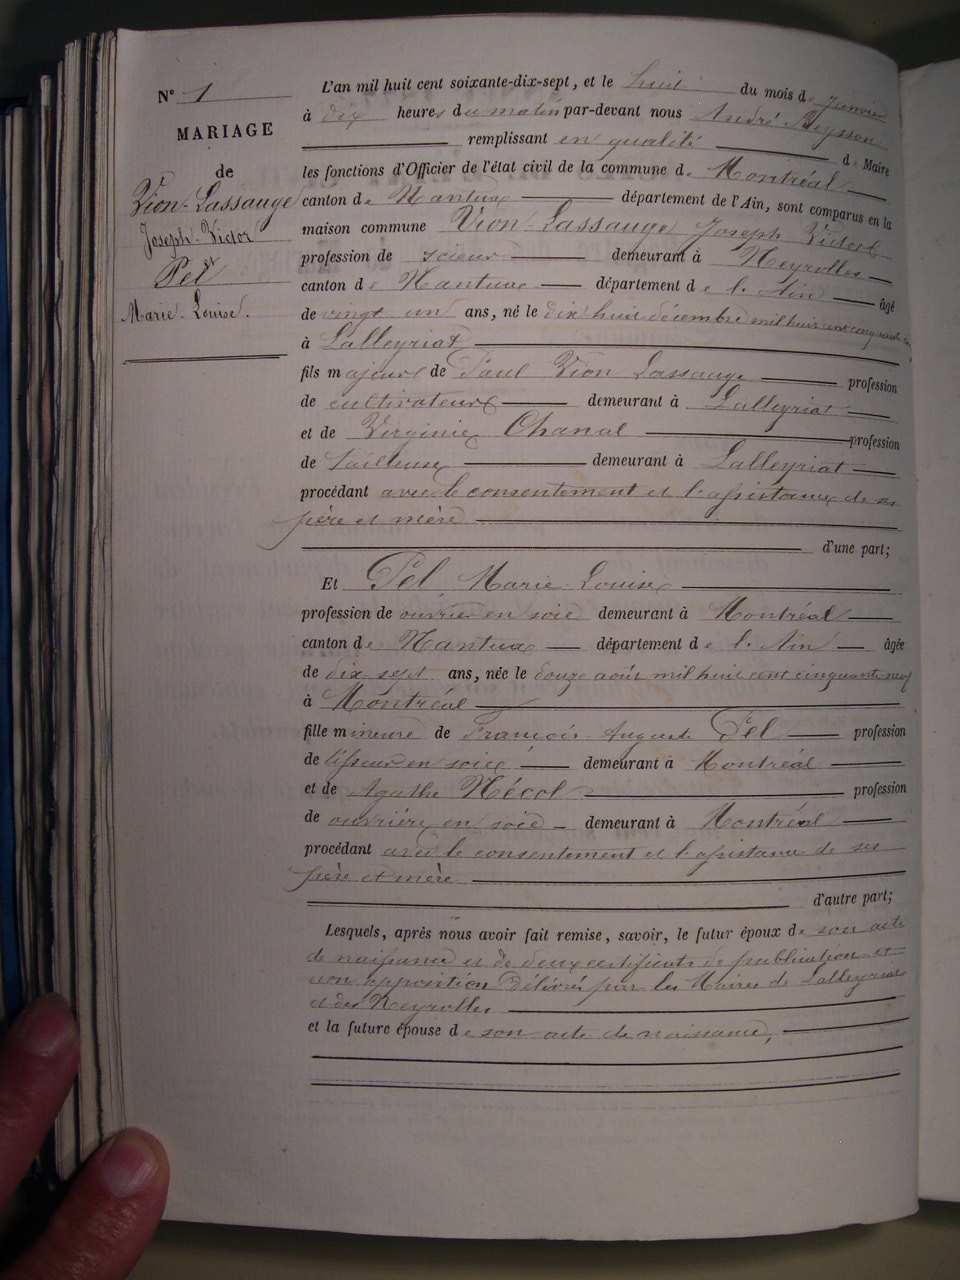 N° 1
MARIAGE
de
Vion-Lassauge
Joseph-Victor
et
Pel
Marie-Louise.
L'an mil huit cent soixante-dix-sept, et le huit du mois de Janvier
à dix heures du matin par-devant nous André Reysson
remplissant en qualité de Maire
les fonctions d'Officier de l'état civil de la commune de Montréal
canton de Nantua département de l'Ain, sont comparus en la
maison commune Vion-Lassauge Joseph Victor
profession de scieur demeurant à Neyrolles
canton de Nantua département de l'Ain âgé
de vingt un ans, né le dix huit décembre mil huit cent cinquante
à Lalleyriat
fils majeur de Paul Vion Lassauge profession
de cultivateur demeurant à Lalleyriat
et de Virginie Chanal profession
de Tailleuse demeurant à Lalleyriat
procédant avec le consentement et l'assistance de ses
père et mère
d'une part;
Et Pel, Marie-Louise
profession de ouvrier en soie demeurant à Montréal
canton de Nantua département de l'Ain âgée
de dix sept ans, née le douze août mil huit cent cinquante neuf
à Montréal
fille mineure de François Auguste Pel profession
de lisseur en soie demeurant à Montréal
et de Agathe Nécol profession
de ouvrière en soie demeurant à Montréal
procédant avec le consentement et l'assistance de ses
père et mère
d'autre part;
Lesquels, après nous avoir fait remise, savoir, le futur époux de son acte
de naissance et de deux certificats de publication et
non opposition délivrés par les Maires de Lalleyriat
et des Neyrolles
et la future épouse de son acte de naissance,